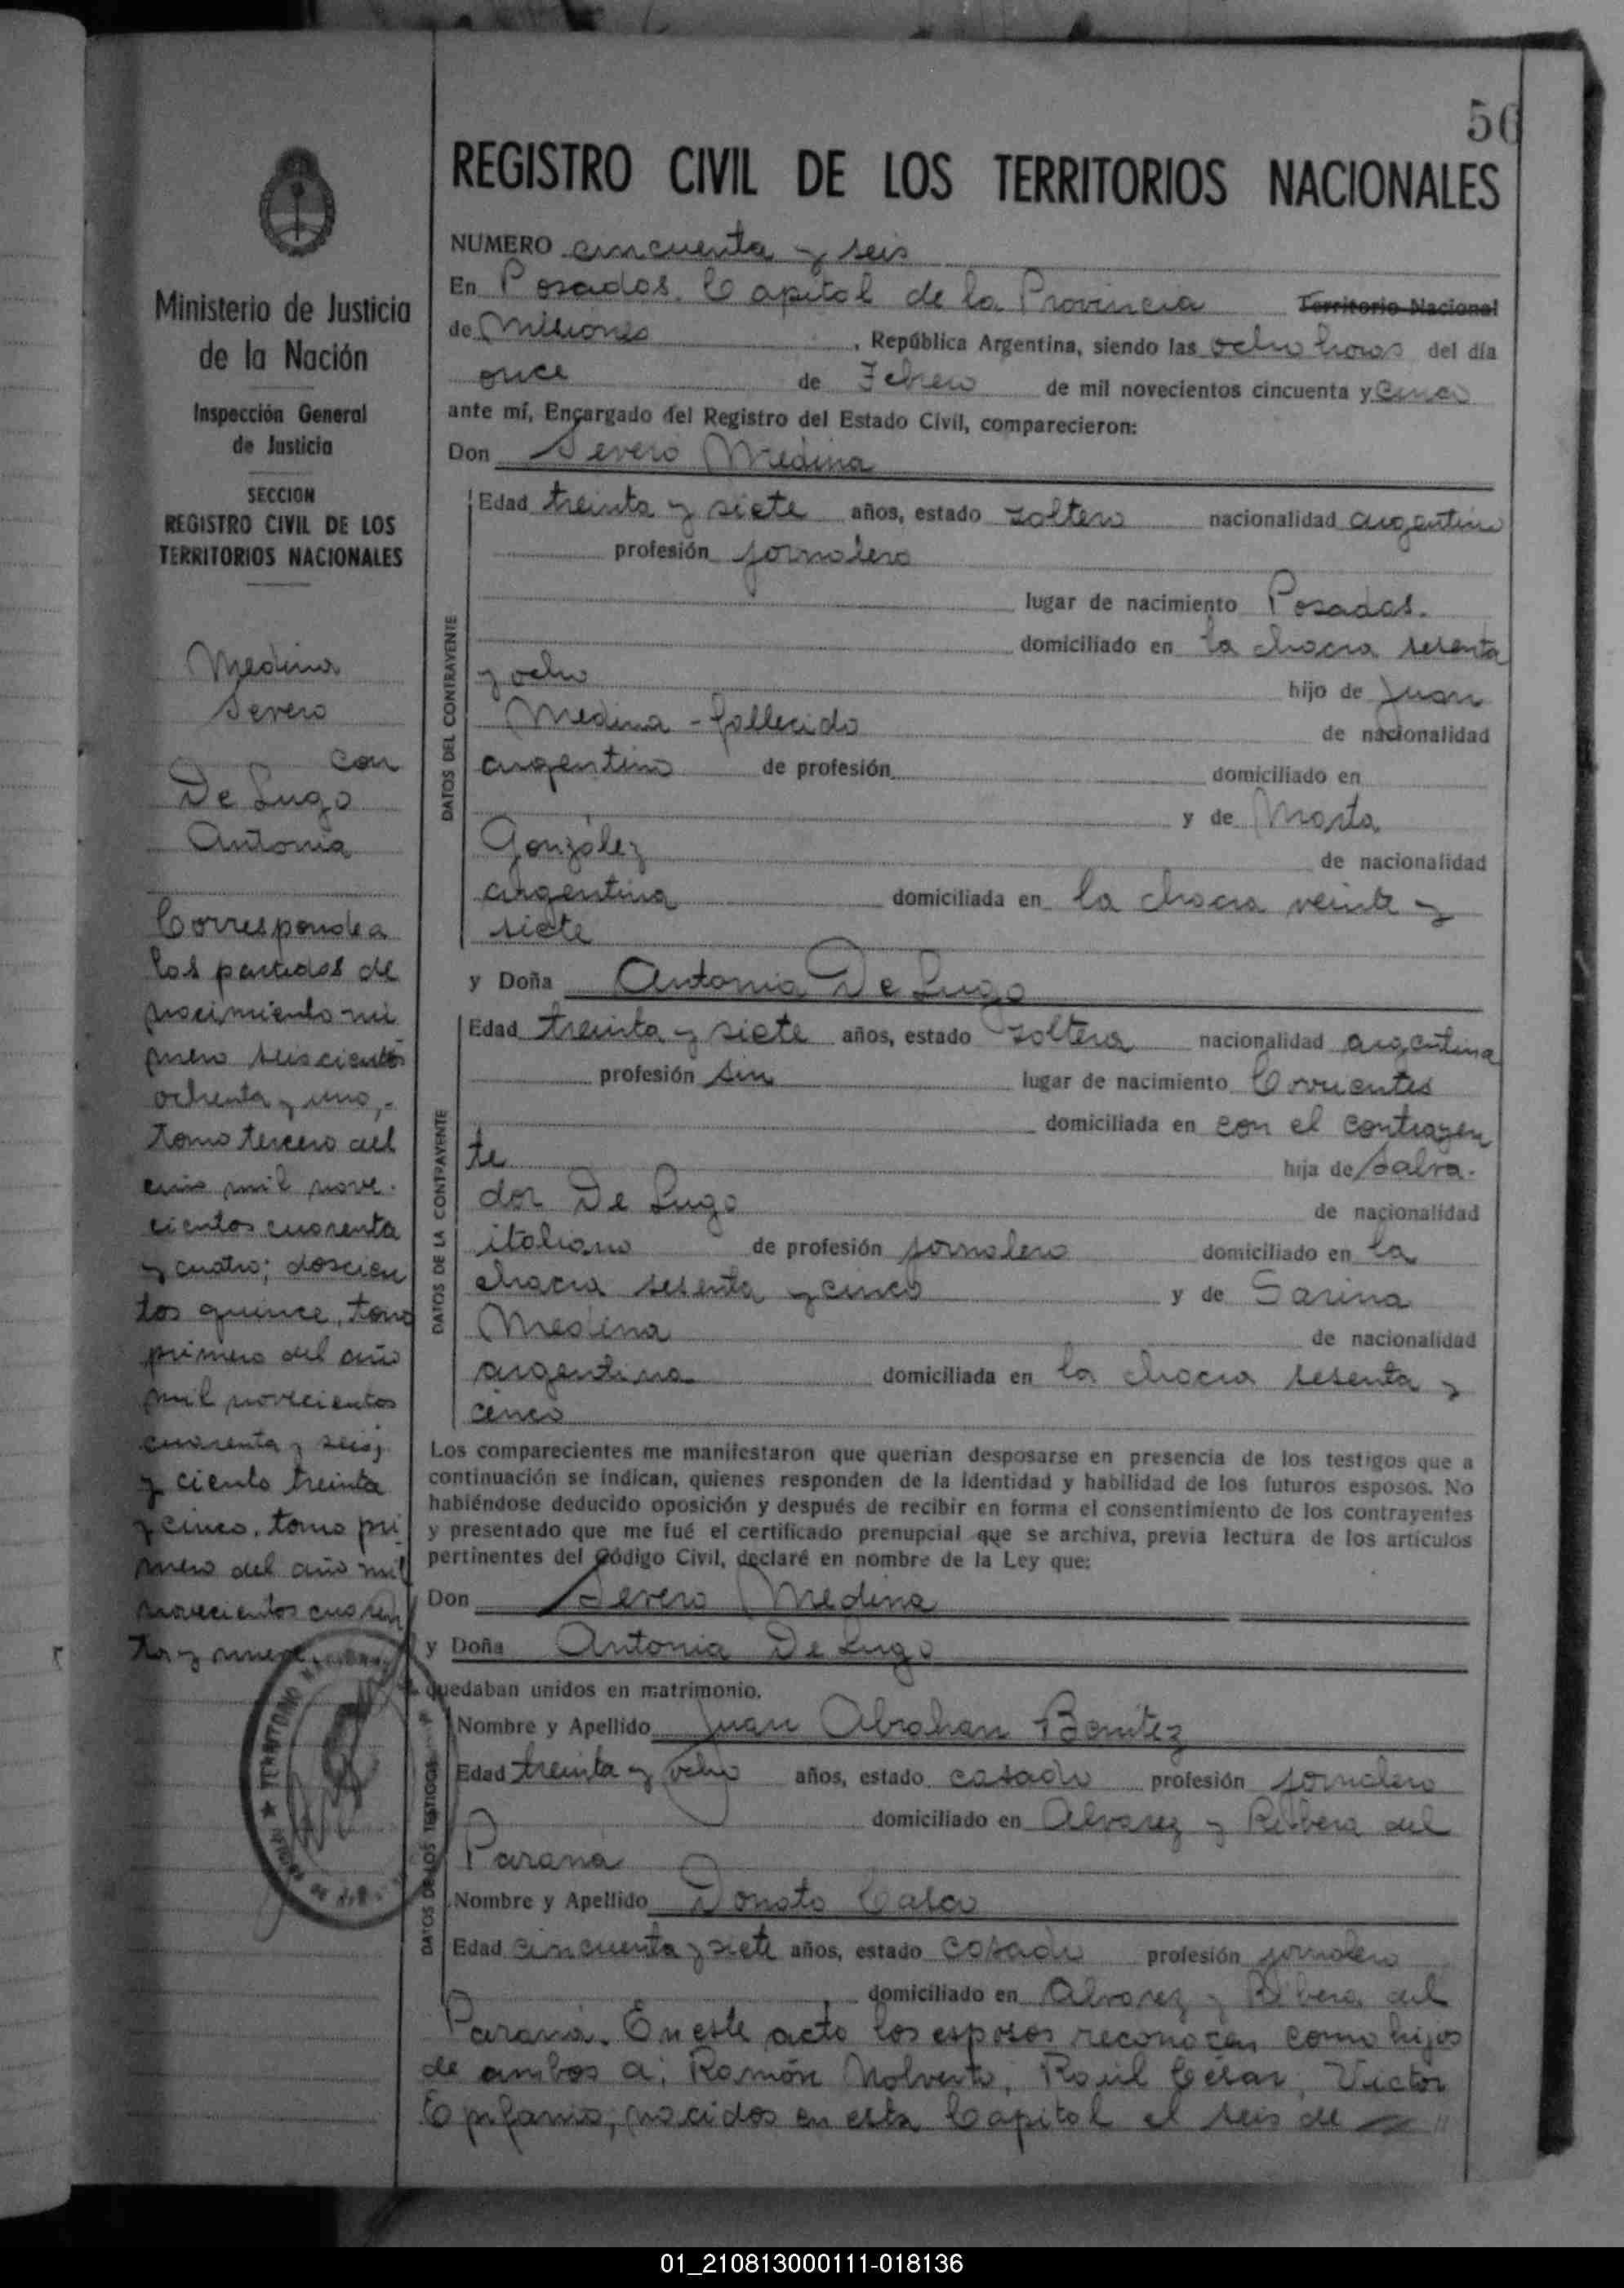 56
REGISTRO CIVIL DE LOS TERRITORIOS NACIONALES
Ministerio de Justicia
de la Nación
Inspección General
de Justicia
SECCION
REGISTRO CIVIL DE LOS
TERRITORIOS NACIONALES
Medina
Severo
con
De Lugo
Antonia
Corresponde a
las partidas de
nacimiento nú
mero seiscientos
ochenta y uno,-
tomo tercero del
año mil nove-
cientos cuarenta
y cuatro; doscien
tos quince, tomo
primero del año
mil novecientos
cuarenta y seis;
y ciento treinta
y cinco, tomo pri
mero del año mil
novecientos cuaren
ta y nueve.
NUMERO cincuenta y seis
En Posadas. Capital de la Provincia Territorio Nacional
de Misiones, República Argentina, siendo las ocho horas del día
once de Febrero de mil novecientos cincuenta y cinco
ante mí, Encargado del Registro del Estado Civil, comparecieron:
Don Severo Medina
DATOS DEL CONTRAYENTE
Edad treinta y siete años, estado soltero nacionalidad argentino
profesión jornalero
lugar de nacimiento Posadas.
domiciliado en la chacra sesenta
y ocho hijo de Juan
Medina - fallecido de nacionalidad
argentino de profesión domiciliado en
y de Marta
González de nacionalidad
argentina domiciliada en la chacra veinte y
siete
y Doña Antonia De Lugo
DATOS DE LA CONTRAYENTE
Edad treinta y siete años, estado soltera nacionalidad argentina
profesión sin lugar de nacimiento Corrientes
domiciliada en con el contrayen
te hija de Salva-
dor De Lugo de nacionalidad
italiano de profesión jornalero domiciliado en la
chacra sesenta y cinco y de Sarina
Medina de nacionalidad
argentina domiciliada en la chacra sesenta y
cinco
Los comparecientes me manifestaron que querían desposarse en presencia de los testigos que a
continuación se indican, quienes responden de la identidad y habilidad de los futuros esposos. No
habiéndose deducido oposición y después de recibir en forma el consentimiento de los contrayentes
y presentado que me fué el certificado prenupcial que se archiva, previa lectura de los artículos
pertinentes del Código Civil, declaré en nombre de la Ley que:
Don Severo Medina
y Doña Antonia De Lugo
quedaban unidos en matrimonio.
DATOS DE LOS TESTIGOS
Nombre y Apellido Juan Abrahan Benitez
Edad treinta y ocho años, estado casado profesión jornalero
domiciliado en Alvarez y Ribera del
Paraná
Nombre y Apellido Donato
Edad cincuenta y siete años, estado casado profesión jornalero
domiciliado en Alvarez y Ribera del
Paraná. En este acto los esposos reconocen como hijos
de ambos a: Ramón Nolverto, Raúl César, Victor
Epifanio, nacidos en esta Capital el seis de
TERRITORIO
01_210813000111-018136